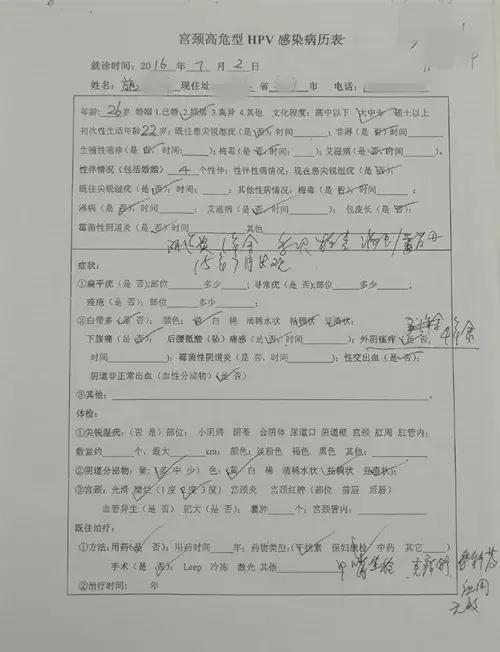 宫颈高危型 HPV 感染病历表
就诊时间：2016年 7 月 2 日
姓名： 现住址 省 市 电话：
年龄：26岁 婚姻 1.已婚 2.同居 3.离异 4.其他 文化程度：高中以下 大中专 硕士以上
初次性生活年龄22岁；既往患尖锐湿疣（是 否），时间 ；非淋（是 否）时间
生殖性疱疹（是 否，时间： ）；梅毒（是 否，时间： ）；艾滋病（是 否，时间 ）。
性伴情况（包括婚姻） 4 个性伴；性伴性病情况：现在患尖锐湿疣（是 否）；
既往尖锐湿疣（是 否）；时间： ；其他性病情况：梅毒（是 否，时间 ）；
淋病（是 否，时间 ）；艾滋病（是 否，时间 ）； 包皮长（是 否）；
霉菌性阴道炎（是 否）时间 其他
症状：
①扁平疣（是 否）；部位 多少 ；寻常疣（是 否）；部位 多少 ；
瘙疮（是 否）；部位 多少 ；
②白带多（是 否）；颜色：黄 白 稀 清稀水状 粘稠状 豆渣状；
下腹痛（是 否）； 后腰骶酸（坠）痛感（是 否，时间 ）；外阴瘙痒（是 否， 4年余
时间 ）；霉菌性阴道炎（是 否，时间 ）；性交出血（是 否）；
阴道非正常出血（血性分泌物）（是 否）
③其他：
体检：
①尖锐湿疣：（否 是）部位： 小阴唇 阴蒂 会阴体 尿道口 阴道壁 宫颈 肛周 肛管内；
数量约 个，最大 cm；颜色：淡粉色 褐色 黑色 其他：
②阴道分泌物：量：（多 中 少） 色：（黄 白 稀 清稀水状 粘稠状 豆渣状）；
③宫颈：光滑 糜烂（1度 2度 3度） 宫颈炎 宫颈红肿（部位 前唇 后唇）
血管异生（是 否） 肥大（是 否）；囊肿 个；宫颈管内：
既往治疗：
①方法：用药（是 否）；用药时间 年；药物类型：（干扰素 保妇康栓 中药 其它 ）
手术（是 否）； Leep 冷冻 激光 其他
②治疗时间： 年